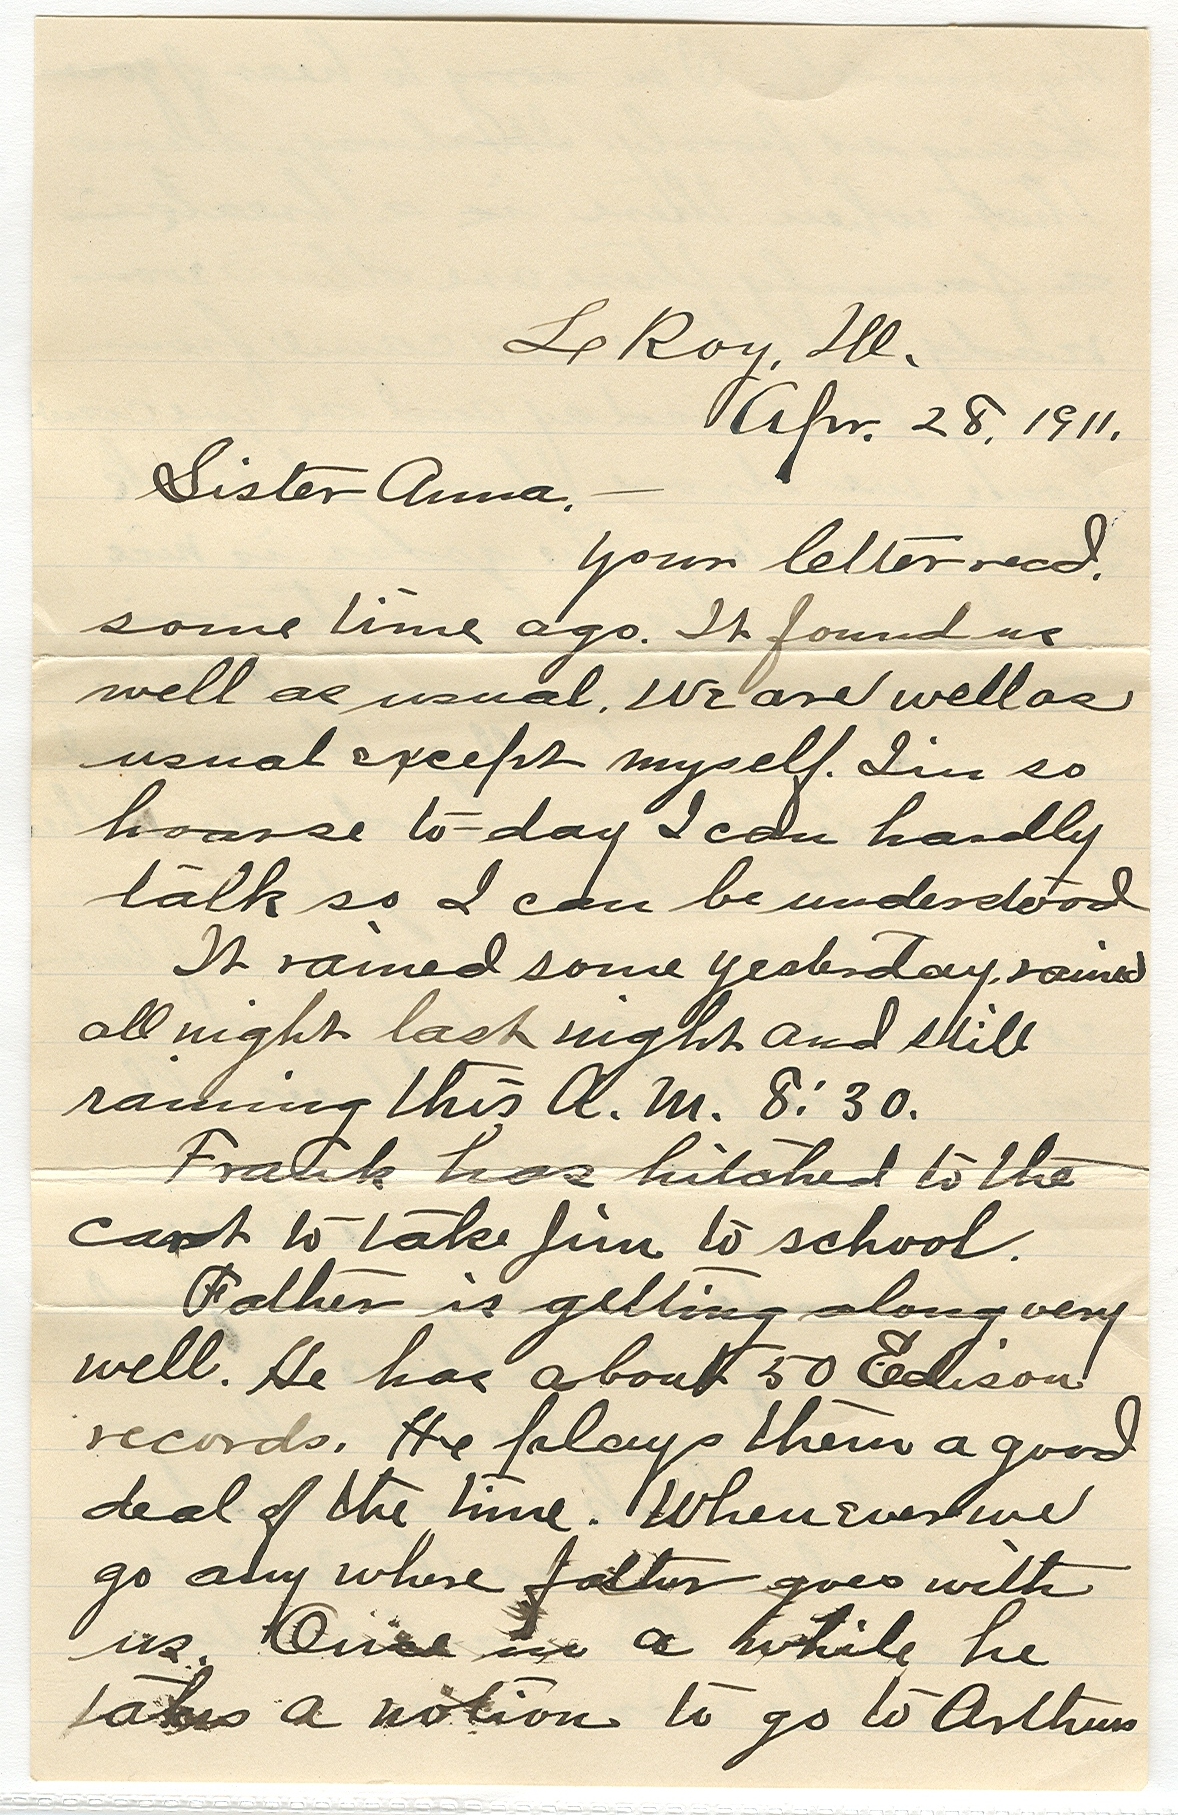 Le Roy, Ill.
Apr. 28, 1911.
Sister Anna, —
your letter recd.
some time ago. It found us
well as usual. We are well as
usual except myself. I'm so
hoarse to-day I can hardly
talk so I can be understood
It rained some yesterday, rained
all night last night and still
raining this A. M. 8:30.
Frank has hitched to the
cart to take Jim to school.
Father is getting along very
well. He has about 50 Edison
records. He plays them a good
deal of the time. Whenever we
go any where father goes with
us. Once in a while he
takes a notion to go to Arthurs